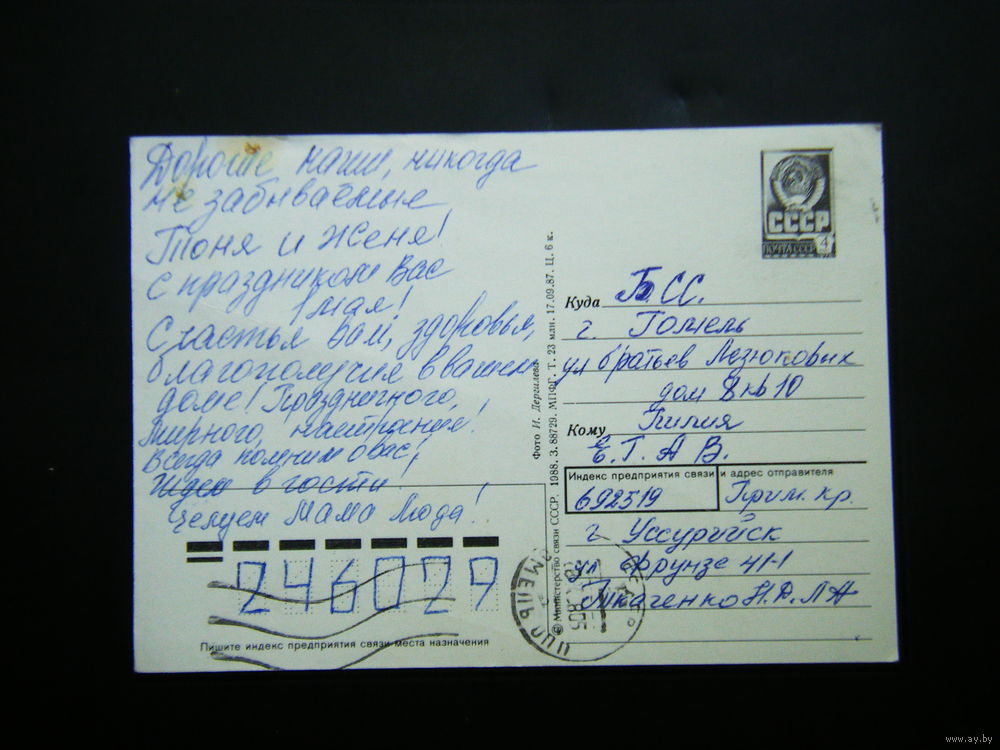 Дорогие наши, никогда
не забываемые
Тоня и Женя!
С праздником Вас
1 мая!
Счастья Вам, здоровья,
благополучия в вашем
доме! Праздничного,
мирного, настроения!
Всегда помним о вас!
Ждем в гости!
Целуем Мама Люда!
246029
Пишите индекс предприятия связи места назначения
© Министерство связи СССР. 1988. З. 88729. МПФГ. Т. 23 млн. 17.09.87. Ц. 6 к.
Фото И. Дергилева
СССР
ПОЧТА СССР 4
Куда Б.СС.
г. Гомель
ул Братьев Лизюковых
дом 8 кв 10
Кому
Е. Г. А В.
Индекс предприятия связи и адрес отправителя
692519 Прим. кр.
г Уссурийск
ул Фрунзе 41-1
Ткаченко Н. Д. ЛА
www.ay.by